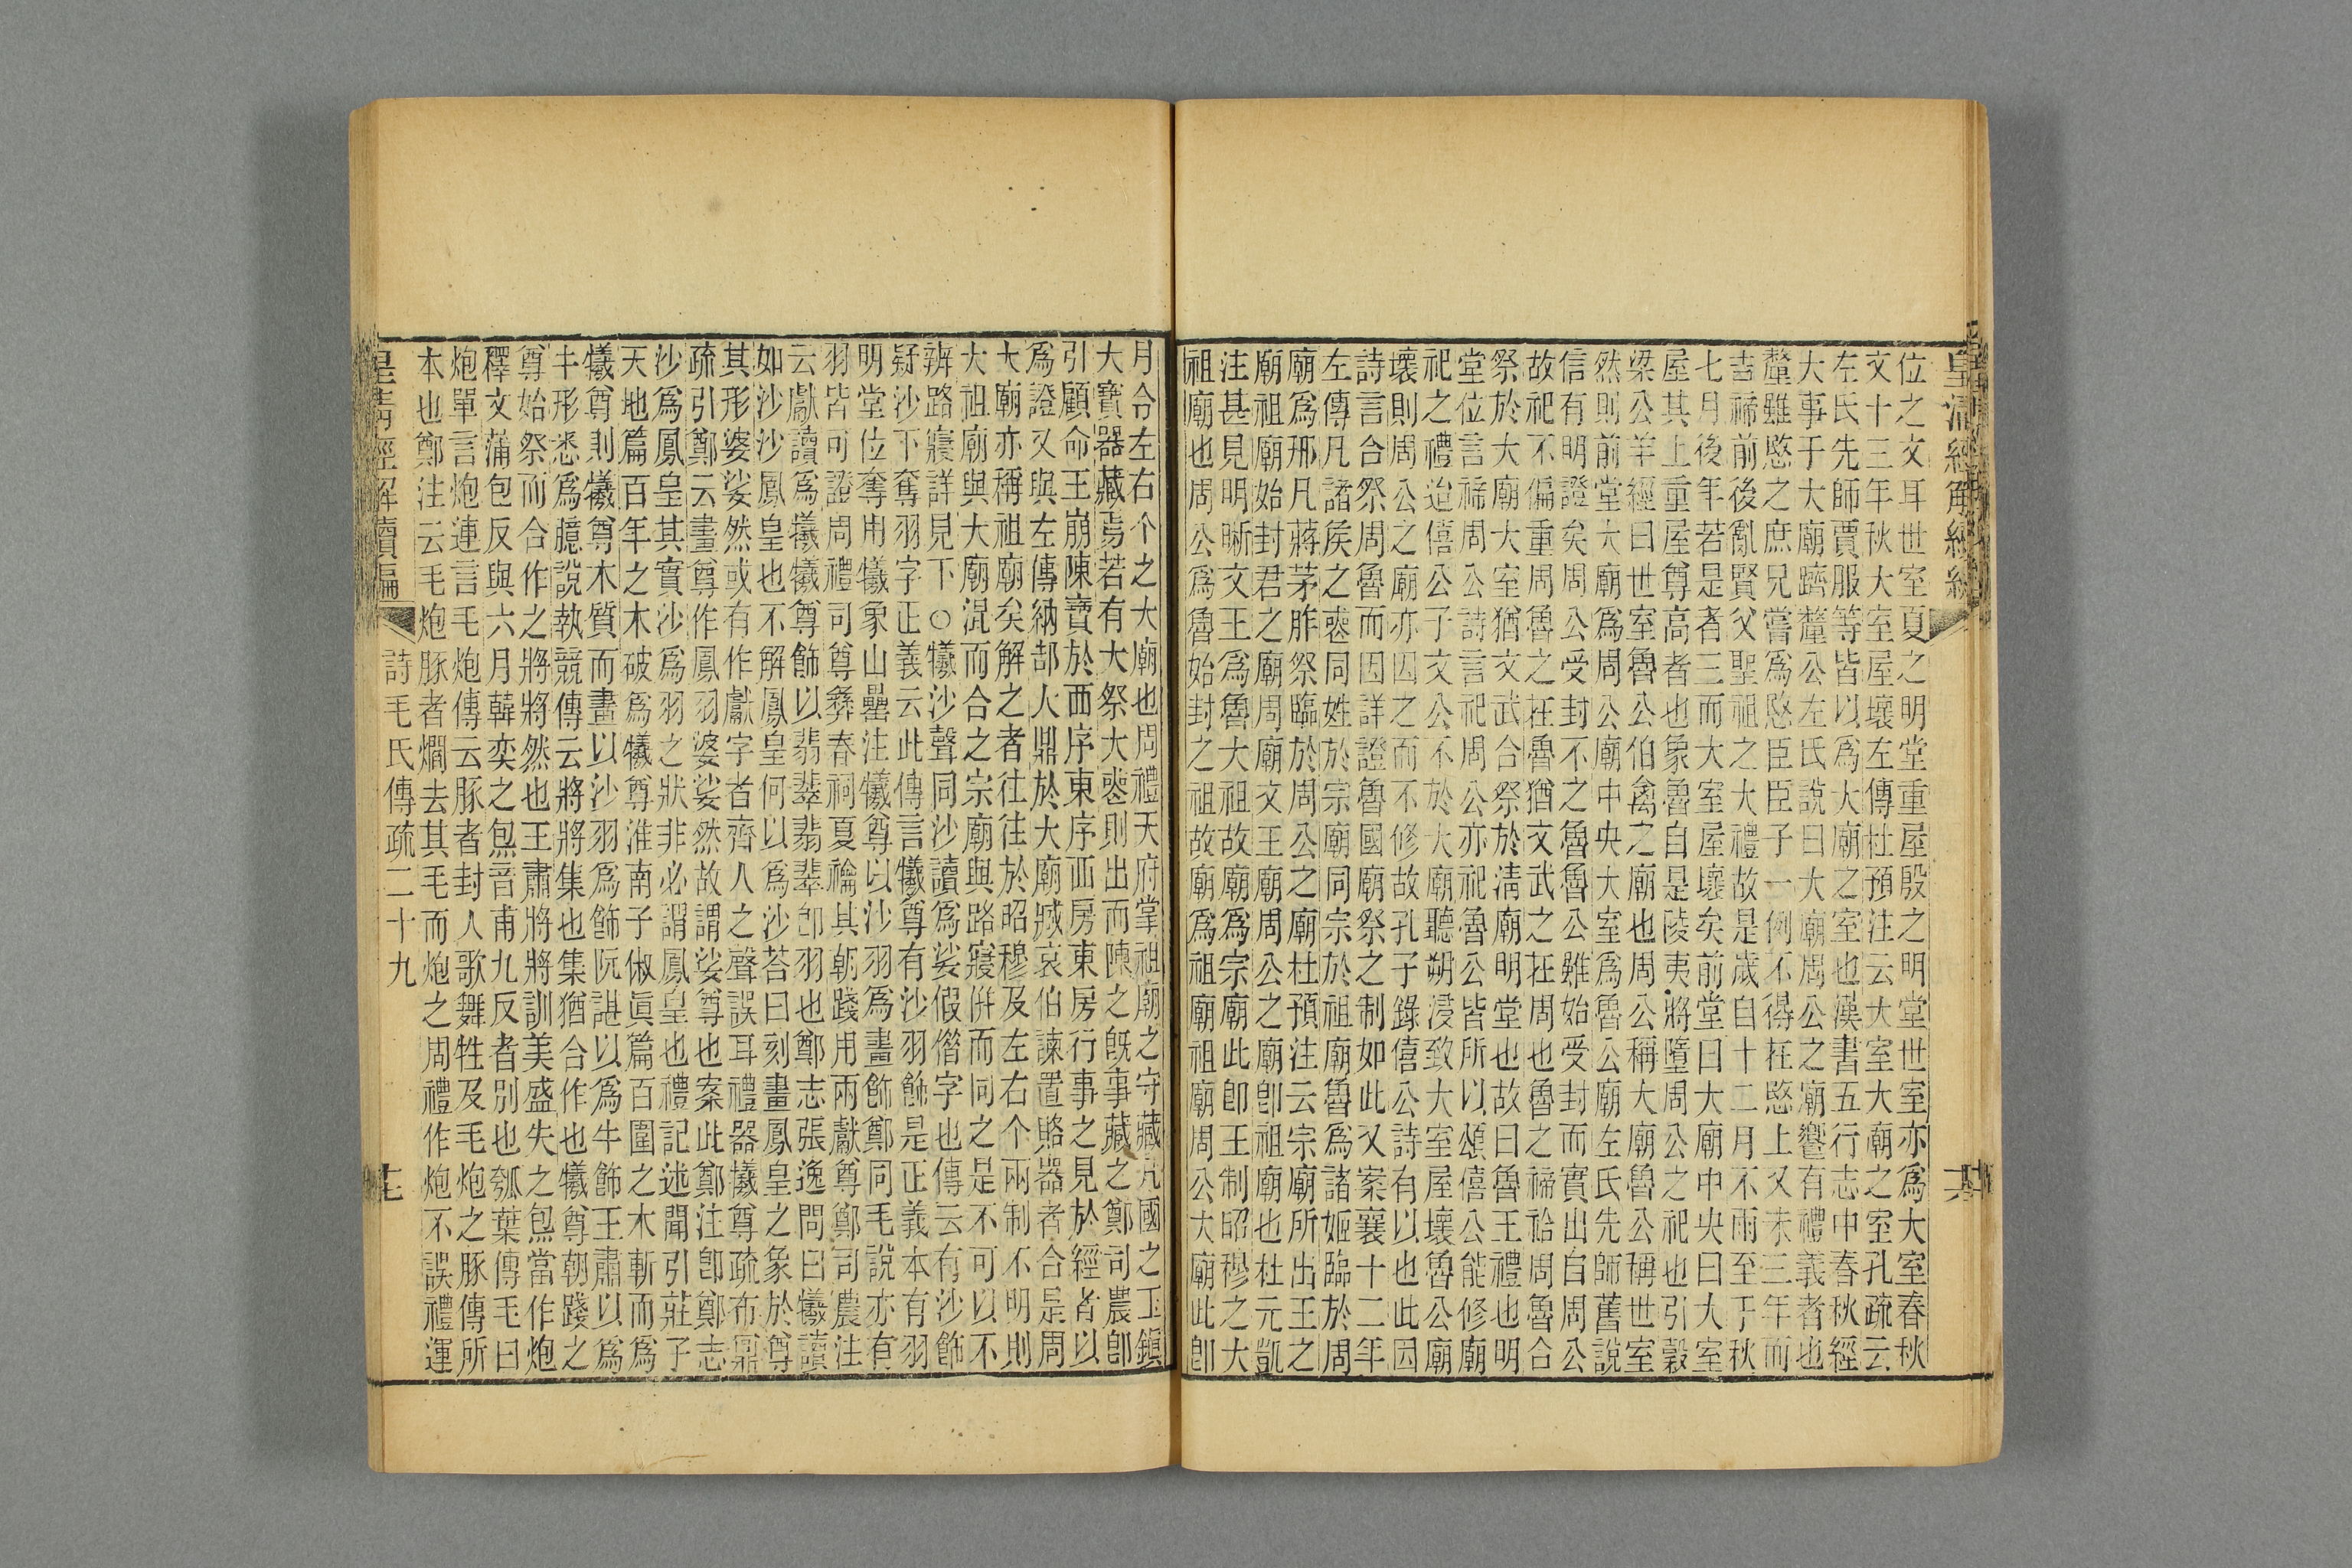 位之文耳世室夏之明堂重屋殷之明堂世室亦爲大室春秋
文十三年秋大室屋壞左傳杜預注云大室大廟之室孔疏云
左氏先師賈服等皆以爲大廟之室也漢書五行志中春秋經
大事于大廟躋釐公左氏說曰大廟周公之廟饗有禮義者也
釐雖愍之庶兄嘗爲愍臣臣子一例不得在愍上又未三年而
吉禘前後亂賢父聖祖之大禮故是歲自十二月不雨至于秋
七月後年若是者三而大室屋壞矣前堂曰大廟中央曰大室
屋其上重屋尊高者也象魯自是陵夷將墮周公之祀也引穀
梁公羊經曰世室魯公伯禽之廟也周公稱大廟魯公稱世室
然則前堂大廟爲周公廟中央大室爲魯公廟左氏先師舊說
信有明證矣周公受封不之魯魯公雖始受封而實出自周公
故祀不偏重周魯之在魯猶文武之在周也魯之禘祫周魯合
祭於大廟大室猶文武合祭於淸廟明堂也故曰魯王禮也明
堂位言禘周公詩言祀周公亦祀魯公皆所以頌僖公能修廟
祀之禮迨僖公子文公不於大廟聽朔浸致大室屋壞魯公廟
壞則周公之廟亦因之而不修故孔子錄僖公詩有以也此因
詩言合祭周魯而因詳證魯國廟祭之制如此又案襄十二年
左傳凡諸矦之喪同姓於宗廟同宗於祖廟魯爲諸姬臨於周
廟爲邢凡蔣茅胙祭臨於周公之廟杜預注云宗廟所出王之
廟祖廟始封君之廟周廟文王廟周公之廟卽祖廟也杜元凱
注甚見明晰文王爲魯大祖故廟爲宗廟此卽王制昭穆之大
祖廟也周公爲魯始封之祖故廟爲祖廟祖廟周公大廟此卽
皇淸經解續編
月令左右个之大廟也周禮天府掌祖廟之守藏凡國之玉鎮
大寶器藏焉若有大祭大喪則出而陳之旣事藏之鄭司農卽
引顧命王崩陳寶於西序東序西房東房行事之見於經者以
爲證又與左傳納郜大鼎於大廟臧哀伯諫置賂器者合是周
大廟亦稱祖廟矣解之者往往於昭穆及左右个兩制不明則
大祖廟與大廟混而合之宗廟與路寢倂而同之是不可以不
辨路寢詳見下○犧沙聲同沙讀爲娑假僭字也傳云有沙飾
疑沙下奪羽字正義云此傳言犧尊有沙羽飾是正義本有羽
明堂位奪用犧象山罍注犧尊以沙羽爲畫飾鄭同毛說亦有
羽皆可證周禮司尊彝春祠夏禴其朝踐用兩獻尊鄭司農注
云獻讀爲犧犧尊飾以翡翠翡翠卽羽也鄭志張逸問曰犧讀
如沙沙鳳皇也不解鳳皇何以爲沙荅曰刻畫鳳皇之象於尊
其形婆娑然或有作獻字者齊人之聲誤耳禮器犧尊疏布鼏
疏引鄭云畫尊作鳳羽婆娑然故謂娑尊也案此鄭注卽鄭志
沙爲鳳皇其實沙爲羽之狀非必謂鳳皇也禮記述聞引莊子
天地篇百年之木破爲犧尊淮南子俶眞篇百圍之木斬而爲
犧尊則犧尊木質而畫以沙羽爲飾阮諶以爲牛飾王肅以爲
牛形悉爲臆說執競傳云將將集也集猶合作也犧尊朝踐之
尊始祭而合作之將將然也王肅將將訓美盛失之炰當作炮
釋文蒲包反與六月韓奕之炰音甫九反者別也瓠葉傳毛曰
炮單言炮連言毛炮傳云豚者封人歌舞牲及毛炮之豚傳所
本也鄭注云毛炮豚者爓去其毛而炮之周禮作炮不誤禮運
皇淸經解續編 詩毛氏傳疏二十九